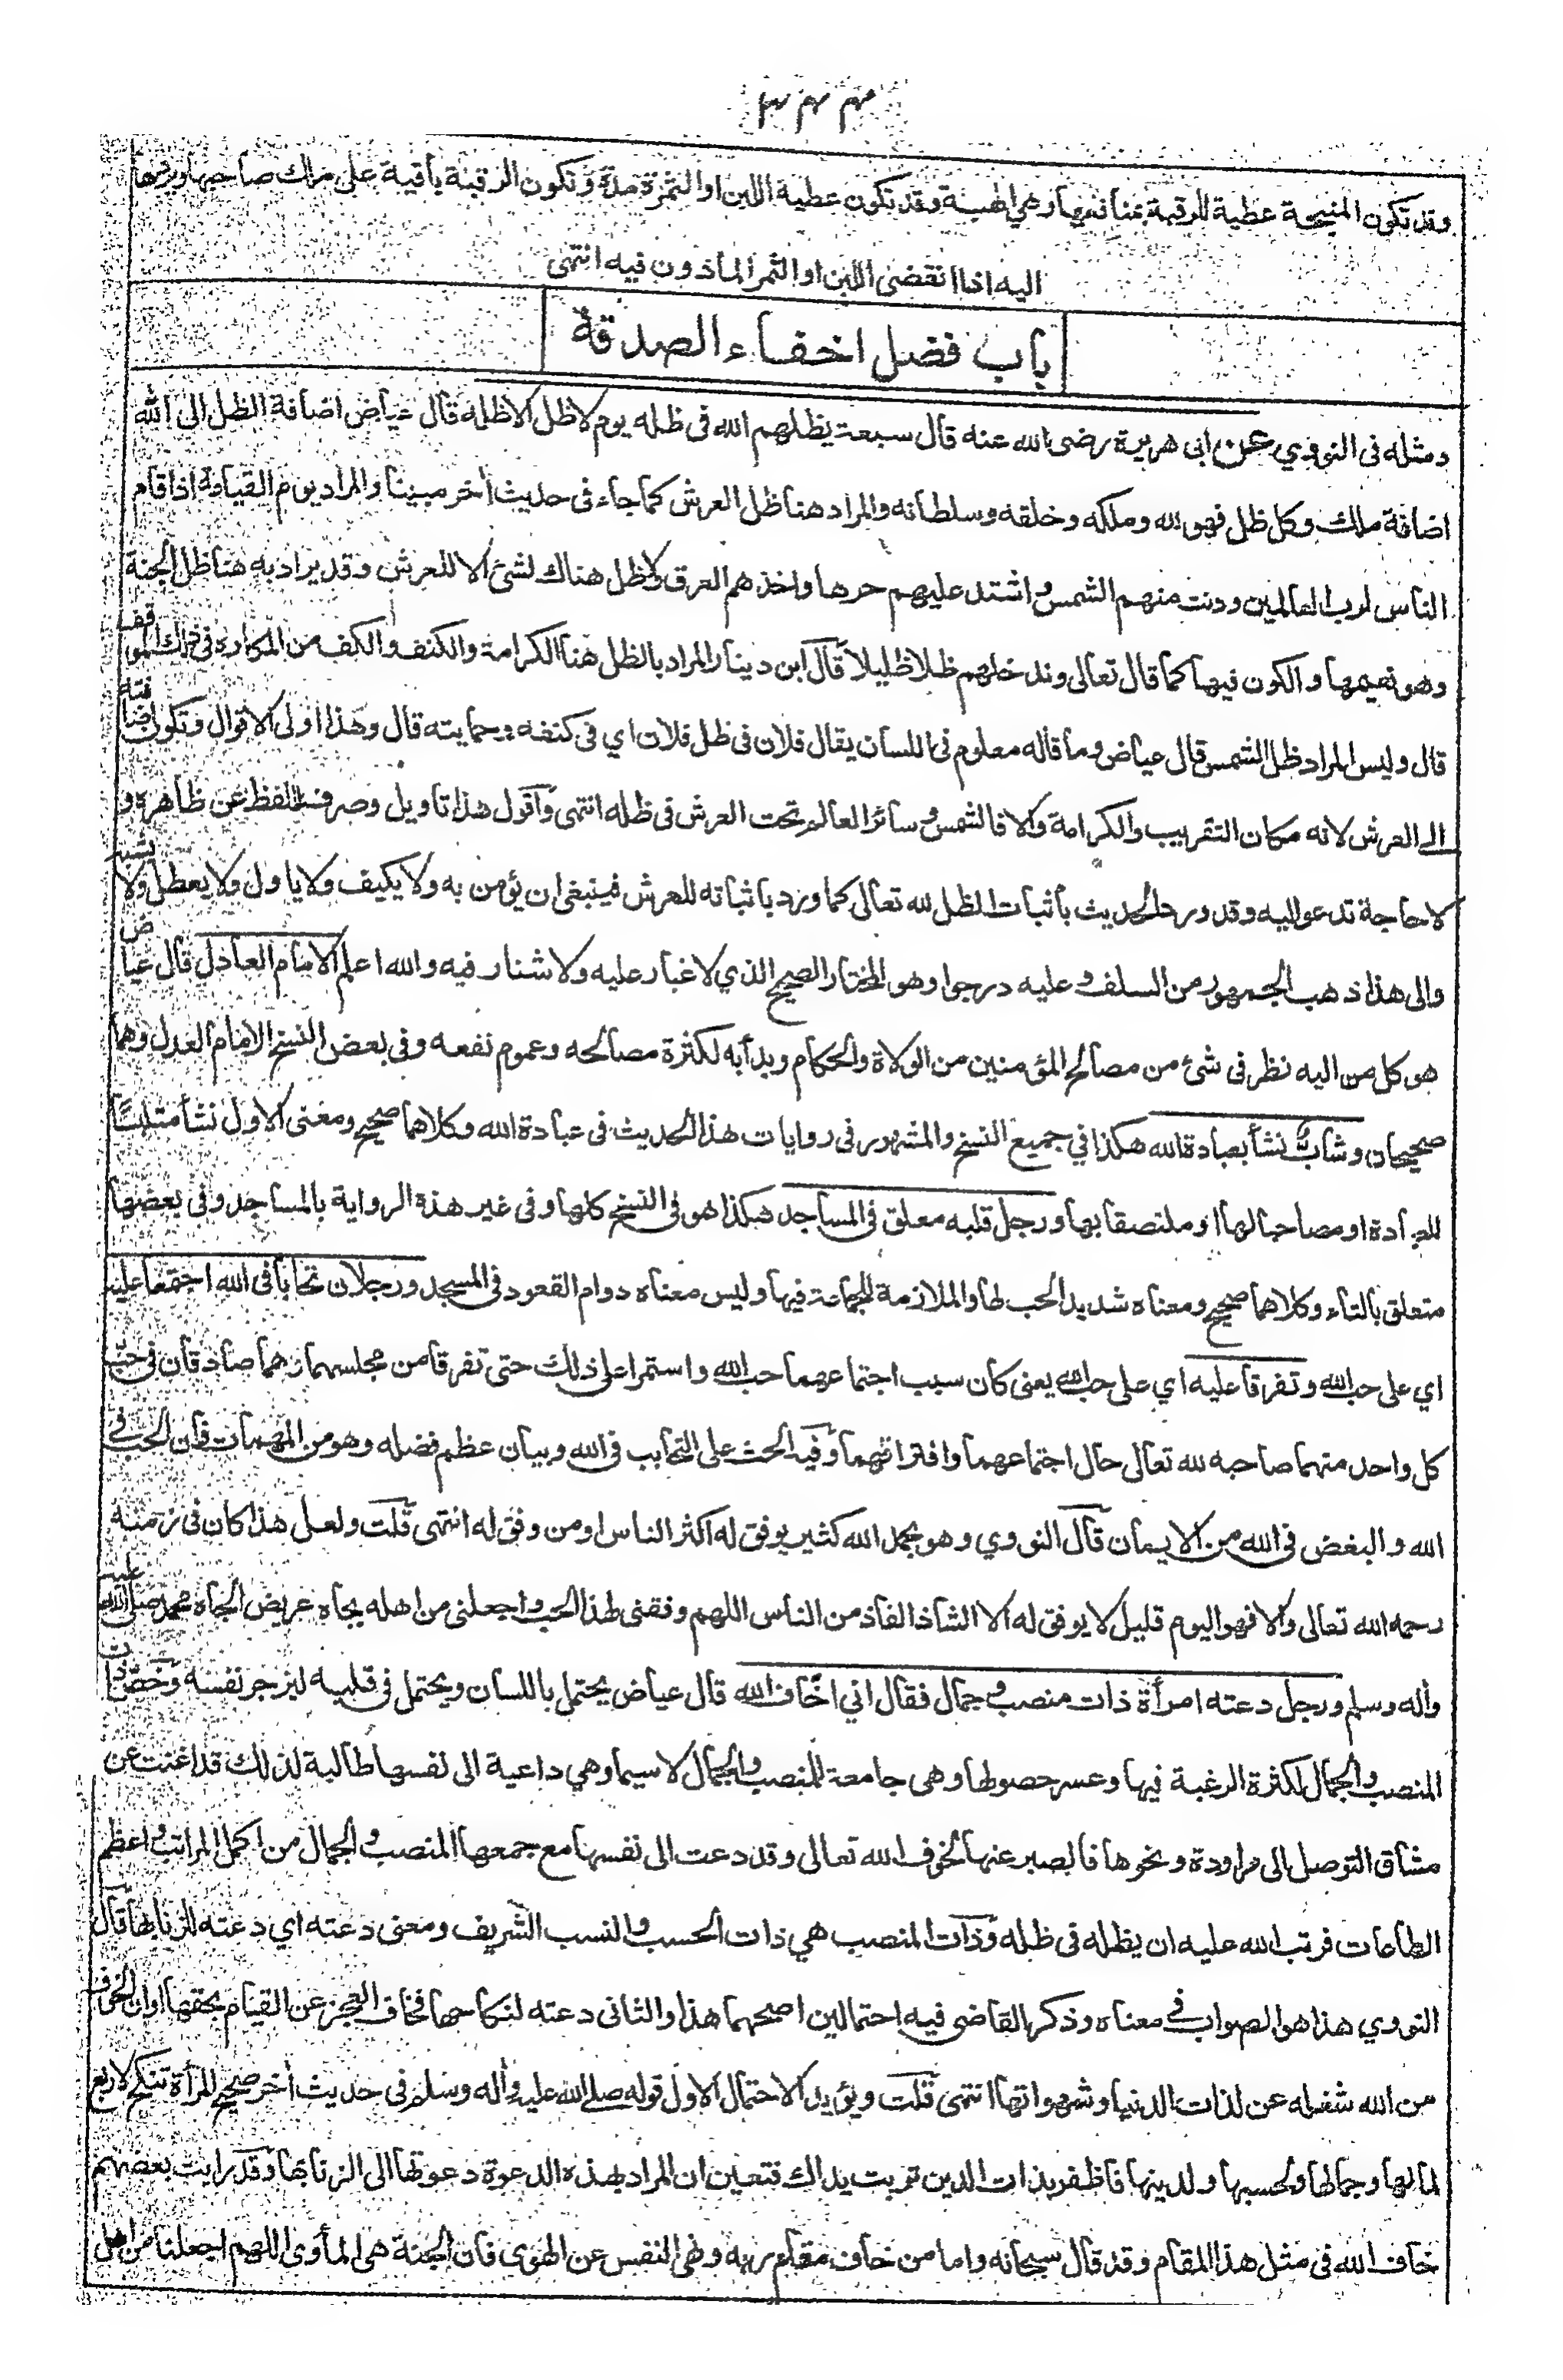 ٣٤٤
وقد تكون المنيحة عطية للرقبة بمنافعها وهي الهبة وقد تكون عطية اللبن او الثمرة مدة وتكون الرقبة باقية على ملك صاحبها ويردها
اليه اذا انقضى اللبن او الثمر الماذون فيه انتهى
باب فضل اخفاء الصدقة
ومثله فى النووي عن ابى هريرة رضى الله عنه قال سبعة يظلهم الله فى ظله يوم لا ظل الا ظله قال عياض اضافة الظل الى الله
اضافة ملك وكل ظل فهو لله وملكه وخلقه وسلطانه والمراد هنا ظل العرش كما جاء فى حديث أخر مبينا والمراد يوم القيامة اذا قام
الناس لرب العالمين ودنت منهم الشمس واشتد عليهم حرها واخذهم العرق ولا ظل هناك لشئ الا للعرش وقد يراد به هنا ظل الجنة
وهو نعيمها والكون فيها كما قال تعالى وندخلهم ظلا ظليلا قال ابن دينار المراد بالظل هنا الكرامة والكنف والكف من المكاره فى ذلك الموقف
قال وليس المراد ظل الشمس قال عياض وما قاله معلوم فى اللسان يقال فلان فى ظل فلان اي فى كنفه وحمايته قال وهذا اولى الاقوال وتكون اضافته
الى العرش لانه مكان التقريب والكرامة والا فالشمس وسائر العالم تحت العرش فى ظله انتهى واقول هذا تاويل وصرف للفظ عن ظاهره و
لا حاجة تدعو اليه وقد ورد الحديث باثبات الظل لله تعالى كما ورد باثباته للعرش فينبغى ان يؤمن به ولا يكيف ولا ياول ولا يعطل ولا يشبه
والى هذا ذهب الجمهور من السلف وعليه درجوا وهو المختار الصحيح الذي لا غبار عليه ولا شنار فيه والله اعلم الامام العادل قال عياض
هو كل من اليه نظر فى شئ من مصالح المؤمنين من الولاة والحكام وبدأ به لكثرة مصالحه وعموم نفعه وفى بعض النسخ الامام العدل وهما
صحيحان وشاب نشأ بعبادة الله هكذا في جميع النسخ والمشهور فى روايات هذا الحديث فى عبادة الله وكلاهما صحيح ومعنى الاول نشأ متلبسًا
للعبادة او مصاحبا لها او ملتصقا بها ورجل قلبه معلق فى المساجد هكذا هو فى النسخ كلها وفى غير هذه الرواية بالمساجد وفى بعضها
متعلق بالتاء وكلاهما صحيح ومعناه شديد الحب لها والملازمة للجماعة فيها وليس معناه دوام القعود فى المسجد ورجلان تحابا فى الله اجتمعا عليه
اي على حب الله وتفرقا عليه اي على حب الله يعنى كان سبب اجتماعهما حب الله واستمرا على ذلك حتى تفرقا من مجلسهما وهما صادقان فى حب
كل واحد منهما صاحبه لله تعالى حال اجتماعهما وافتراقهما وفيه الحث على التحابب فى الله وبيان عظم فضله وهو من المهمات فان الحب في
الله والبغض فى الله من الايمان قال النووي وهو بحمد الله كثير يوفق له اكثر الناس او من وفق له انتهى قلت ولعل هذا كان فى زمنه
رحمه الله تعالى والا فهو اليوم قليل لا يوفق له الا الشاذ الفاذ من الناس اللهم وفقنى لهذا الحب واجعلنى من اهله بجاه عريض الجاه محمد صلى الله عليه
وأله وسلم ورجل دعته امرأة ذات منصب وجمال فقال اني اخاف الله قال عياض يحتمل باللسان ويحتمل فى قلبيه ليزجر نفسه وخص ذات
المنصب والجمال لكثرة الرغبة فيها وعسر حصولها وهى جامعة للمنصب والجمال لا سيما وهي داعية الى نفسها طالبة لذلك قد اغنت عن
مشاق التوصل الى مراودة ونحوها فالصبر عنها لخوف الله تعالى وقد دعت الى نفسها مع جمعها المنصب والجمال من اكمل المراتب واعظم
الطاعات فرتب الله عليه ان يظله فى ظله وذات المنصب هي ذات الحسب والنسب الشريف ومعنى دعته اي دعته للزنا بها قال
النووي هذا هو الصواب في معناه وذكر القاضى فيه احتمالين اصحهما هذا والثانى دعته لنكاحها فخاف العجز عن القيام بحقها او ان الخوف
من الله شغله عن لذات الدنيا وشهواتها انتهى قلت ويؤيد الاحتمال الاول قوله صلى الله عليه وأله وسلم فى حديث أخر صحيح المرأة تنكح لاربع
لمالها وجمالها ولحسبها ولدينها فاظفر بذات الدين تربت يداك فتعين ان المراد بهذه الدعوة دعوتها الى الزنا بها وقد رايت بعضهم
خاف الله فى مثل هذا المقام وقد قال سبحانه واما من خاف مقام ربه ونهى النفس عن الهوى فان الجنة هى المأوى اللهم اجعلنا من اهل